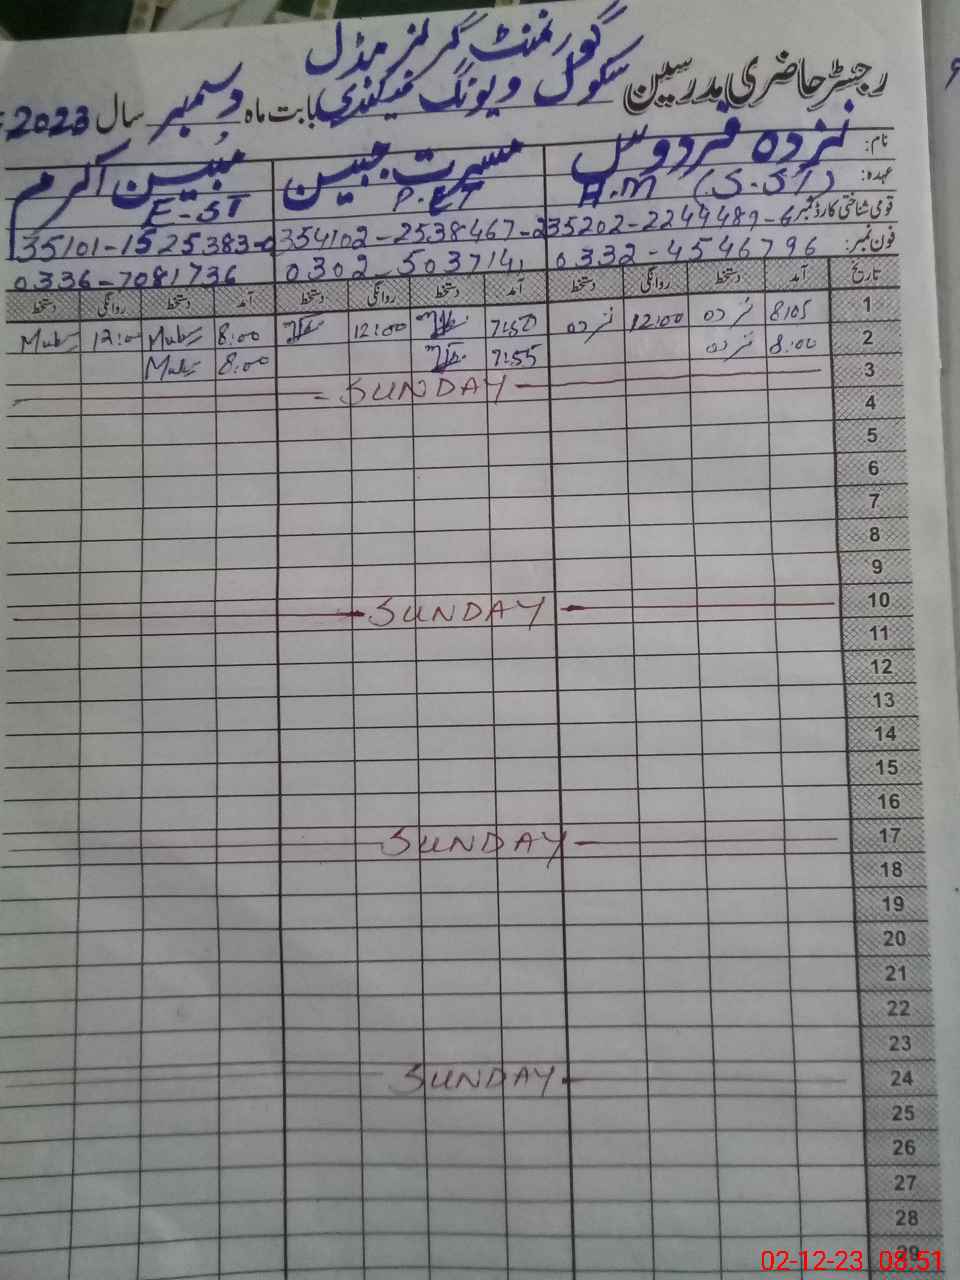 گورنمنٹ گرلز مڈل
رجسٹر حاضری مدرسین سکول ویونگ
بابت ماہ دسمبر سال 2023
نام: نزدہ فردوس مسرت جبین مبین اکرم
عہدہ: H.M (S.ST) P.ET E-ST
قومی شناختی کارڈ نمبر 35202-2244489-6 354102-2538467-2 35101-1525383-0
فون نمبر: 0332-4546796 0302-5037141 0336-7081736
تاریخ آمد دستخط روانگی دستخط آمد دستخط روانگی دستخط آمد دستخط روانگی دستخط
1 8:05 نزدہ 12:00 نزدہ 7:50 12:00 8:00 12:00
2 8:00 نزدہ 7:55 8:00
3 SUNDAY
4
5
6
7
8
9
10 SUNDAY
11
12
13
14
15
16
17 SUNDAY
18
19
20
21
22
23
24 SUNDAY
25
26
27
28
29
02-12-23 08:51